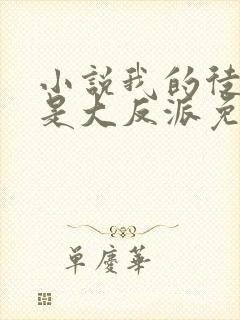 小說我的徒
是大反派免
單慶華